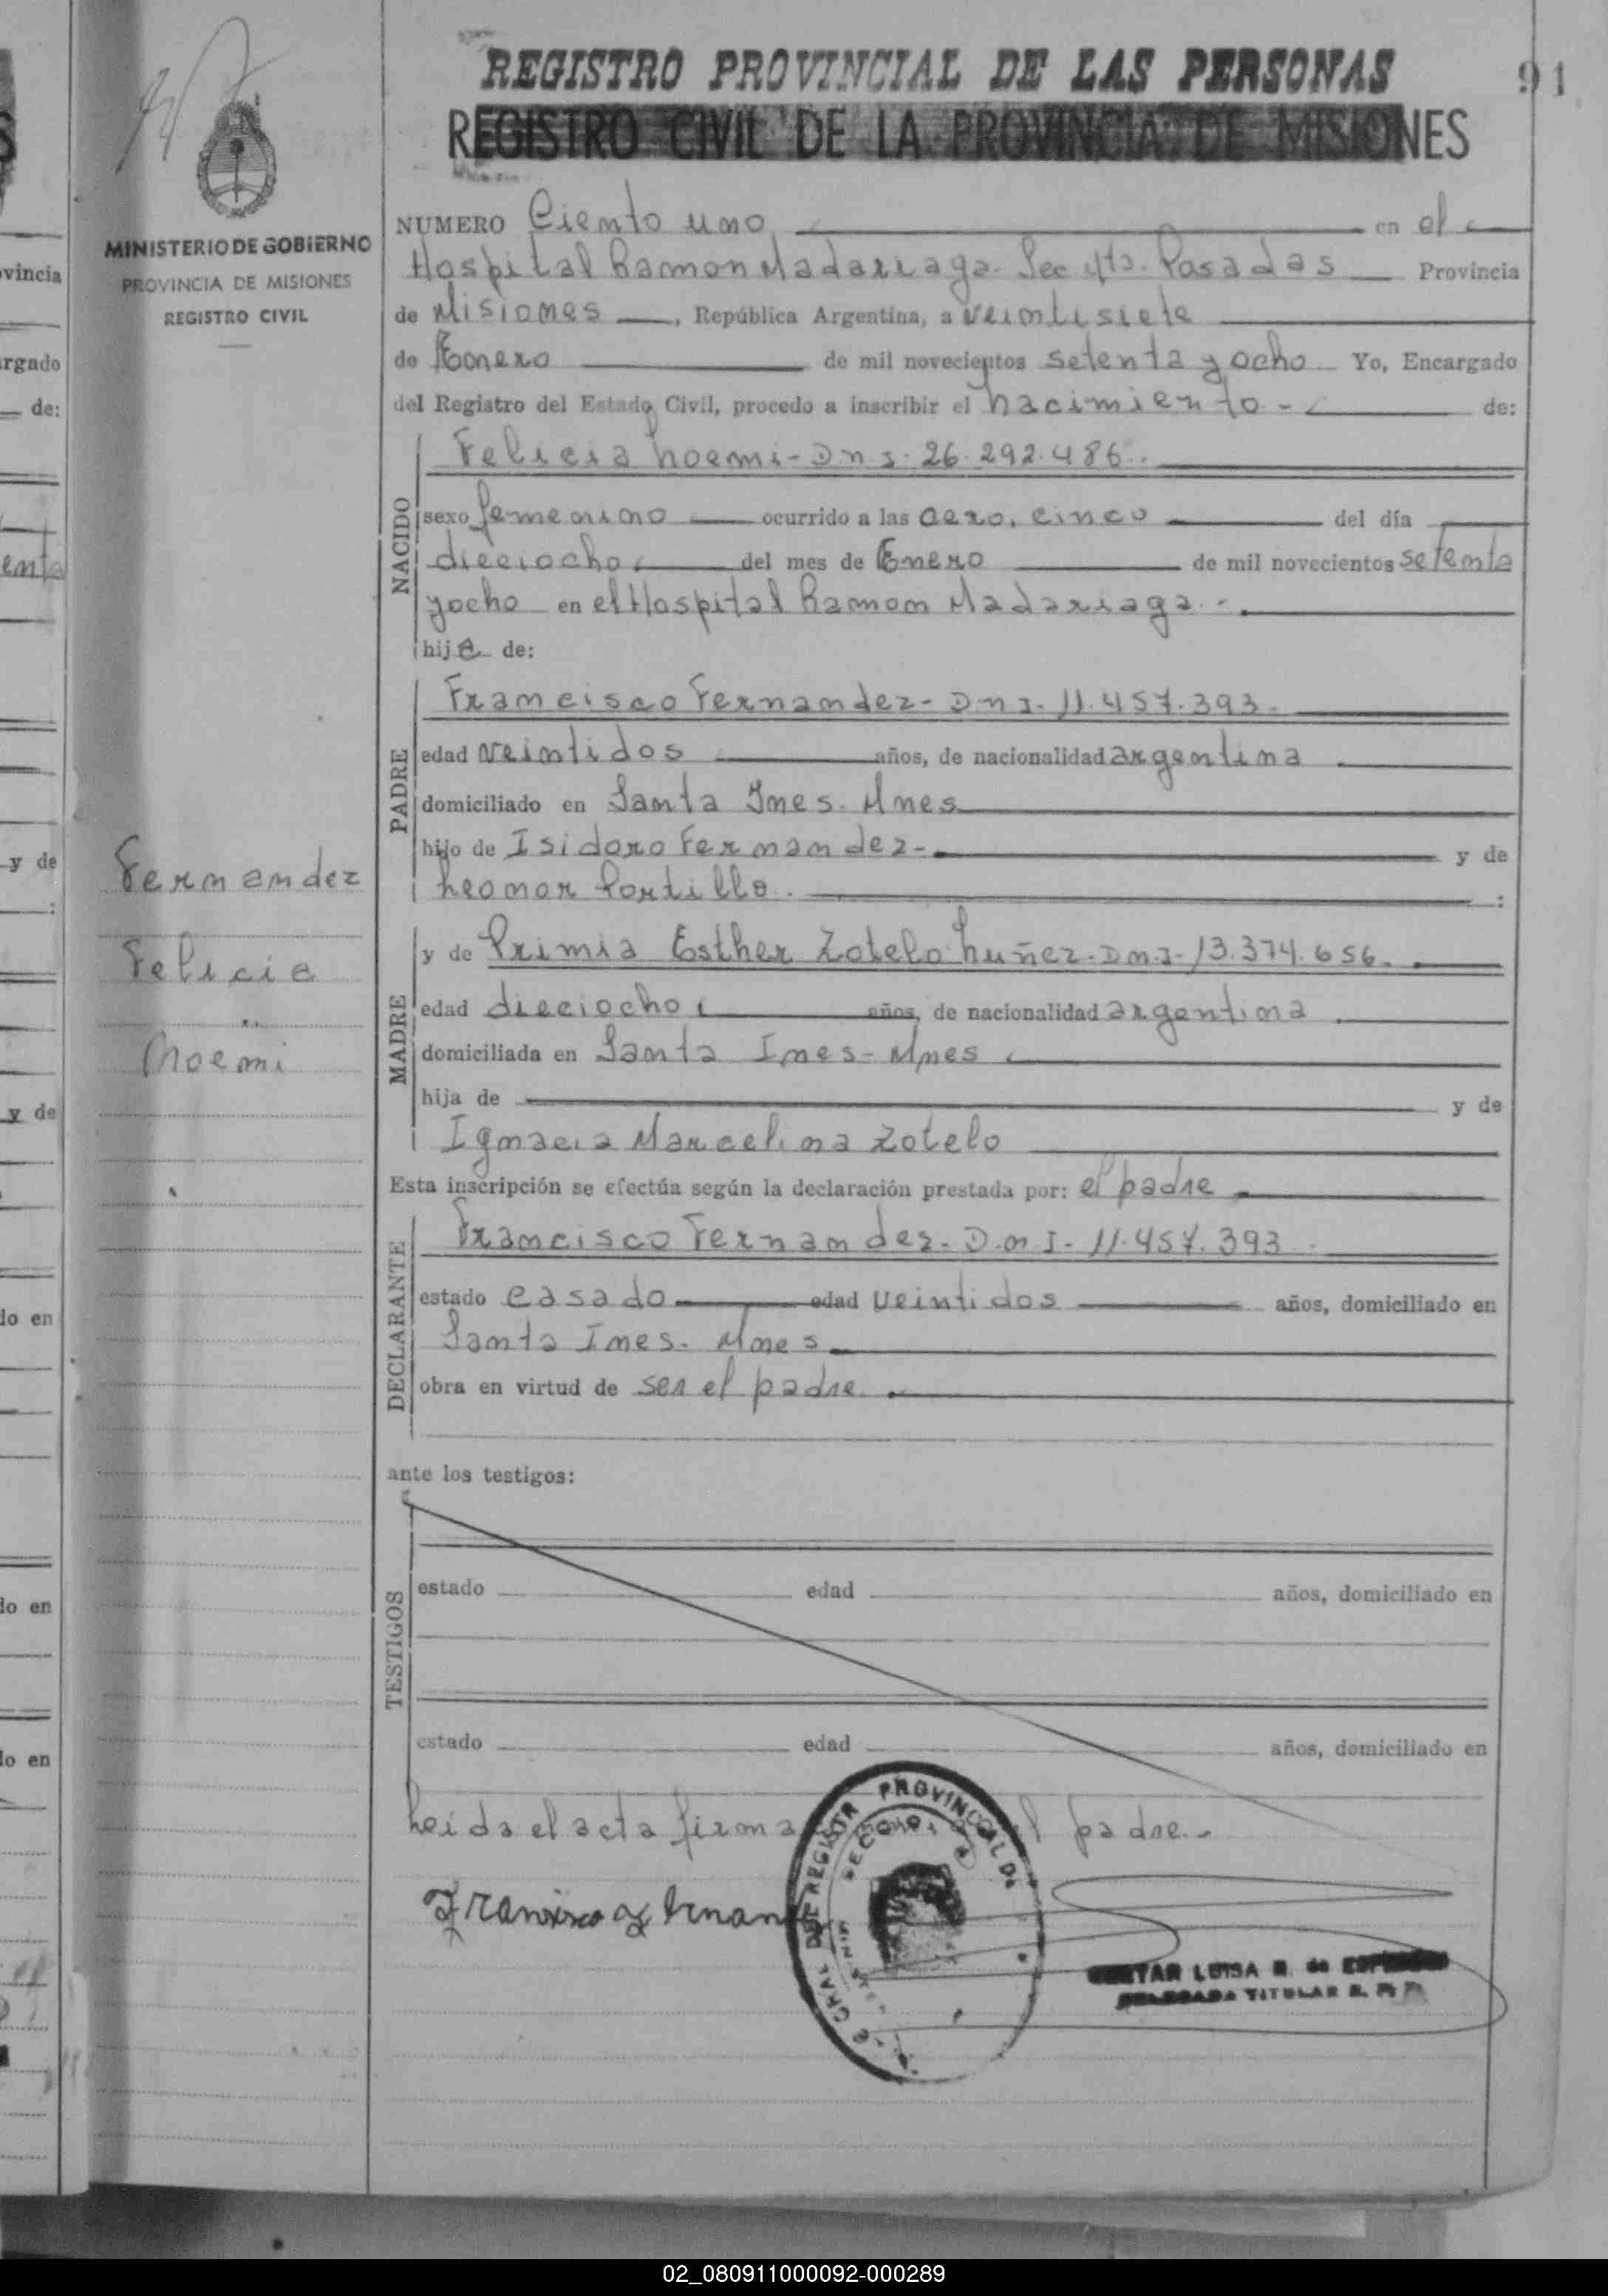 REGISTRO PROVINCIAL DE LAS PERSONAS
91
REGISTRO CIVIL DE LA PROVINCIA DE MISIONES
MINISTERIO DE GOBIERNO
PROVINCIA DE MISIONES
REGISTRO CIVIL
NUMERO Ciento uno en el
Hospital Ramon Madariaga. Sec 4ta. Posadas Provincia
de Misiones, República Argentina, a veintisiete
de Enero de mil novecientos setenta y ocho Yo, Encargado
del Registro del Estado Civil, procedo a inscribir el nacimiento - de:
NACIDO
Felicia Noemi - D n I. 26.292.486.
sexo femenino ocurrido a las cero, cinco del día
dieciocho del mes de Enero de mil novecientos setenta
y ocho en el Hospital Ramon Madariaga. -
hija de:
PADRE
Francisco Fernandez - D n I - 11.457.393 -
edad veintidos años, de nacionalidad argentina
domiciliado en Santa Ines. Mnes
hijo de Isidoro Fernandez - y de
Leonor Portillo. :
Fernandez
Felicia
Noemi
MADRE
y de Primia Esther Zotelo Nuñez - D n I - 13.374.656.
edad dieciocho años, de nacionalidad argentina
domiciliada en Santa Ines - Mnes
hija de y de
Ignacia Marcelina Zotelo
Esta inscripción se efectúa según la declaración prestada por: el padre
DECLARANTE
Francisco Fernandez - D.n I - 11.457.393
estado casado edad veintidos años, domiciliado en
Santa Ines. Mnes
obra en virtud de ser el padre.
ante los testigos:
TESTIGOS
estado edad años, domiciliado en
estado edad años, domiciliado en
Leida el acta firma el padre. -
Francisco Fernan
PROVINCIAL DE
LUISA R. de
TITULAR R. P. P.
y de
y de
02_080911000092-000289